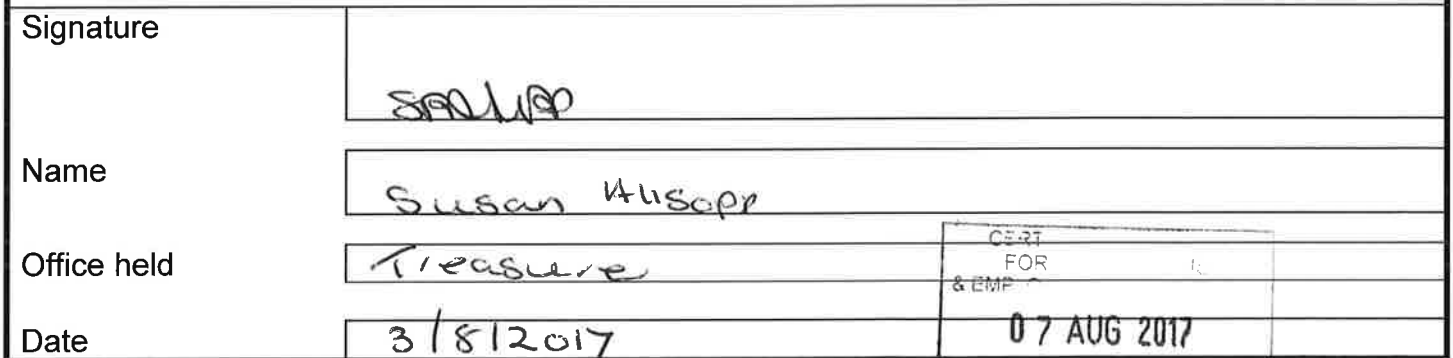 Signature
Name
Susan Allsopp
Office held
Treasure
CERT
FOR
& EMP
Date
3/8/2017
07 AUG 2017